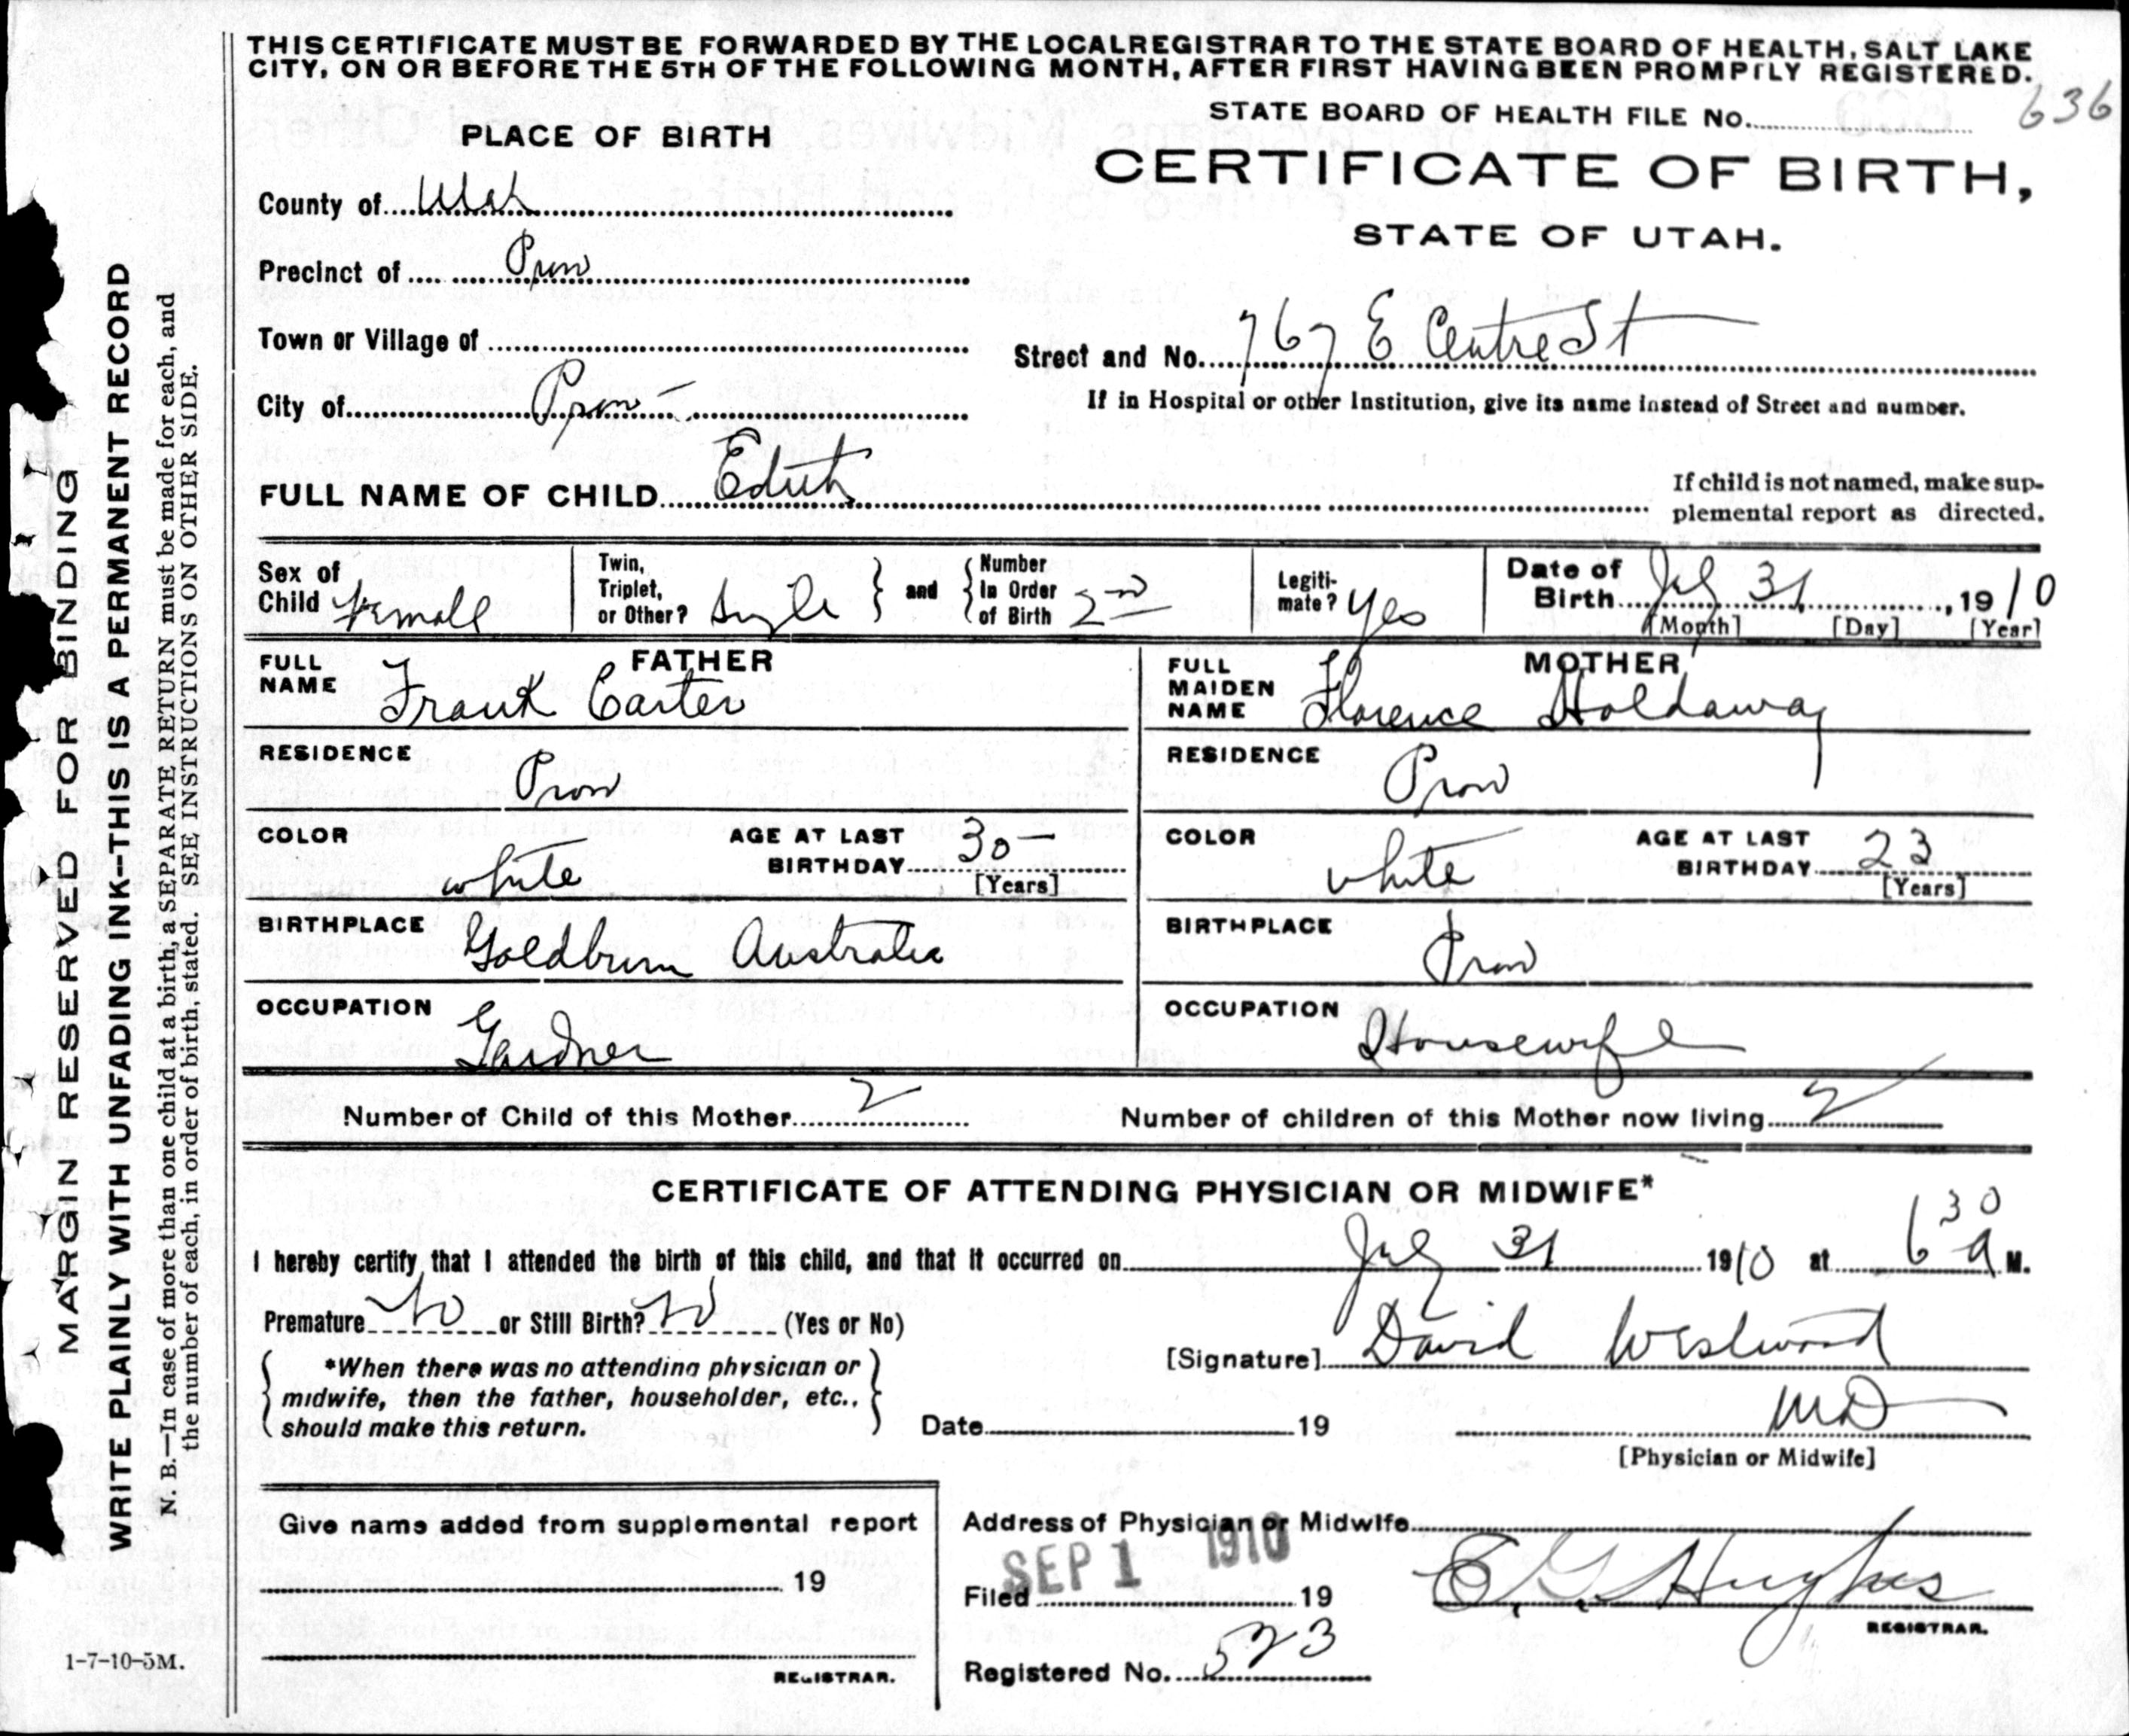 THIS CERTIFICATE MUST BE FORWARDED BY THE LOCAL REGISTRAR TO THE STATE BOARD OF HEALTH, SALT LAKE
CITY, ON OR BEFORE THE 5TH OF THE FOLLOWING MONTH, AFTER FIRST HAVING BEEN PROMPTLY REGISTERED.
STATE BOARD OF HEALTH FILE No. 636
PLACE OF BIRTH
CERTIFICATE OF BIRTH,
STATE OF UTAH.
County of Utah
Precinct of Provo
Town or Village of
Street and No. 767 E Centre St
City of Provo
If in Hospital or other Institution, give its name instead of Street and number.
FULL NAME OF CHILD Edith
If child is not named, make sup-
plemental report as directed.
Sex of Child Female
Twin, Triplet, or Other? Single
and Number In Order of Birth 2nd
Legiti-mate? Yes
Date of Birth July 31, 1910
[Month] [Day] [Year]
FATHER
FULL NAME Frank Carter
RESIDENCE Provo
COLOR white
AGE AT LAST BIRTHDAY 30 [Years]
BIRTHPLACE Goldburn Australia
OCCUPATION Gardner
MOTHER
FULL MAIDEN NAME Florence Holdaway
RESIDENCE Provo
COLOR white
AGE AT LAST BIRTHDAY 23 [Years]
BIRTHPLACE Provo
OCCUPATION Housewife
Number of Child of this Mother 2
Number of children of this Mother now living 2
CERTIFICATE OF ATTENDING PHYSICIAN OR MIDWIFE*
I hereby certify that I attended the birth of this child, and that it occurred on July 31 1910 at 6 30 A M.
Premature No or Still Birth? No (Yes or No)
*When there was no attending physician or
midwife, then the father, householder, etc.,
should make this return.
[Signature] David Westwood
MD
Date 19
[Physician or Midwife]
Give name added from supplemental report
19
REGISTRAR.
Address of Physician or Midwife
Filed SEP 1 1910 19
E. G. Hughes
REGISTRAR.
Registered No. 523
1-7-10-5M.
MARGIN RESERVED FOR BINDING
WRITE PLAINLY WITH UNFADING INK—THIS IS A PERMANENT RECORD
N. B.—In case of more than one child at a birth, a SEPARATE RETURN must be made for each, and
the number of each, in order of birth, stated. SEE INSTRUCTIONS ON OTHER SIDE.